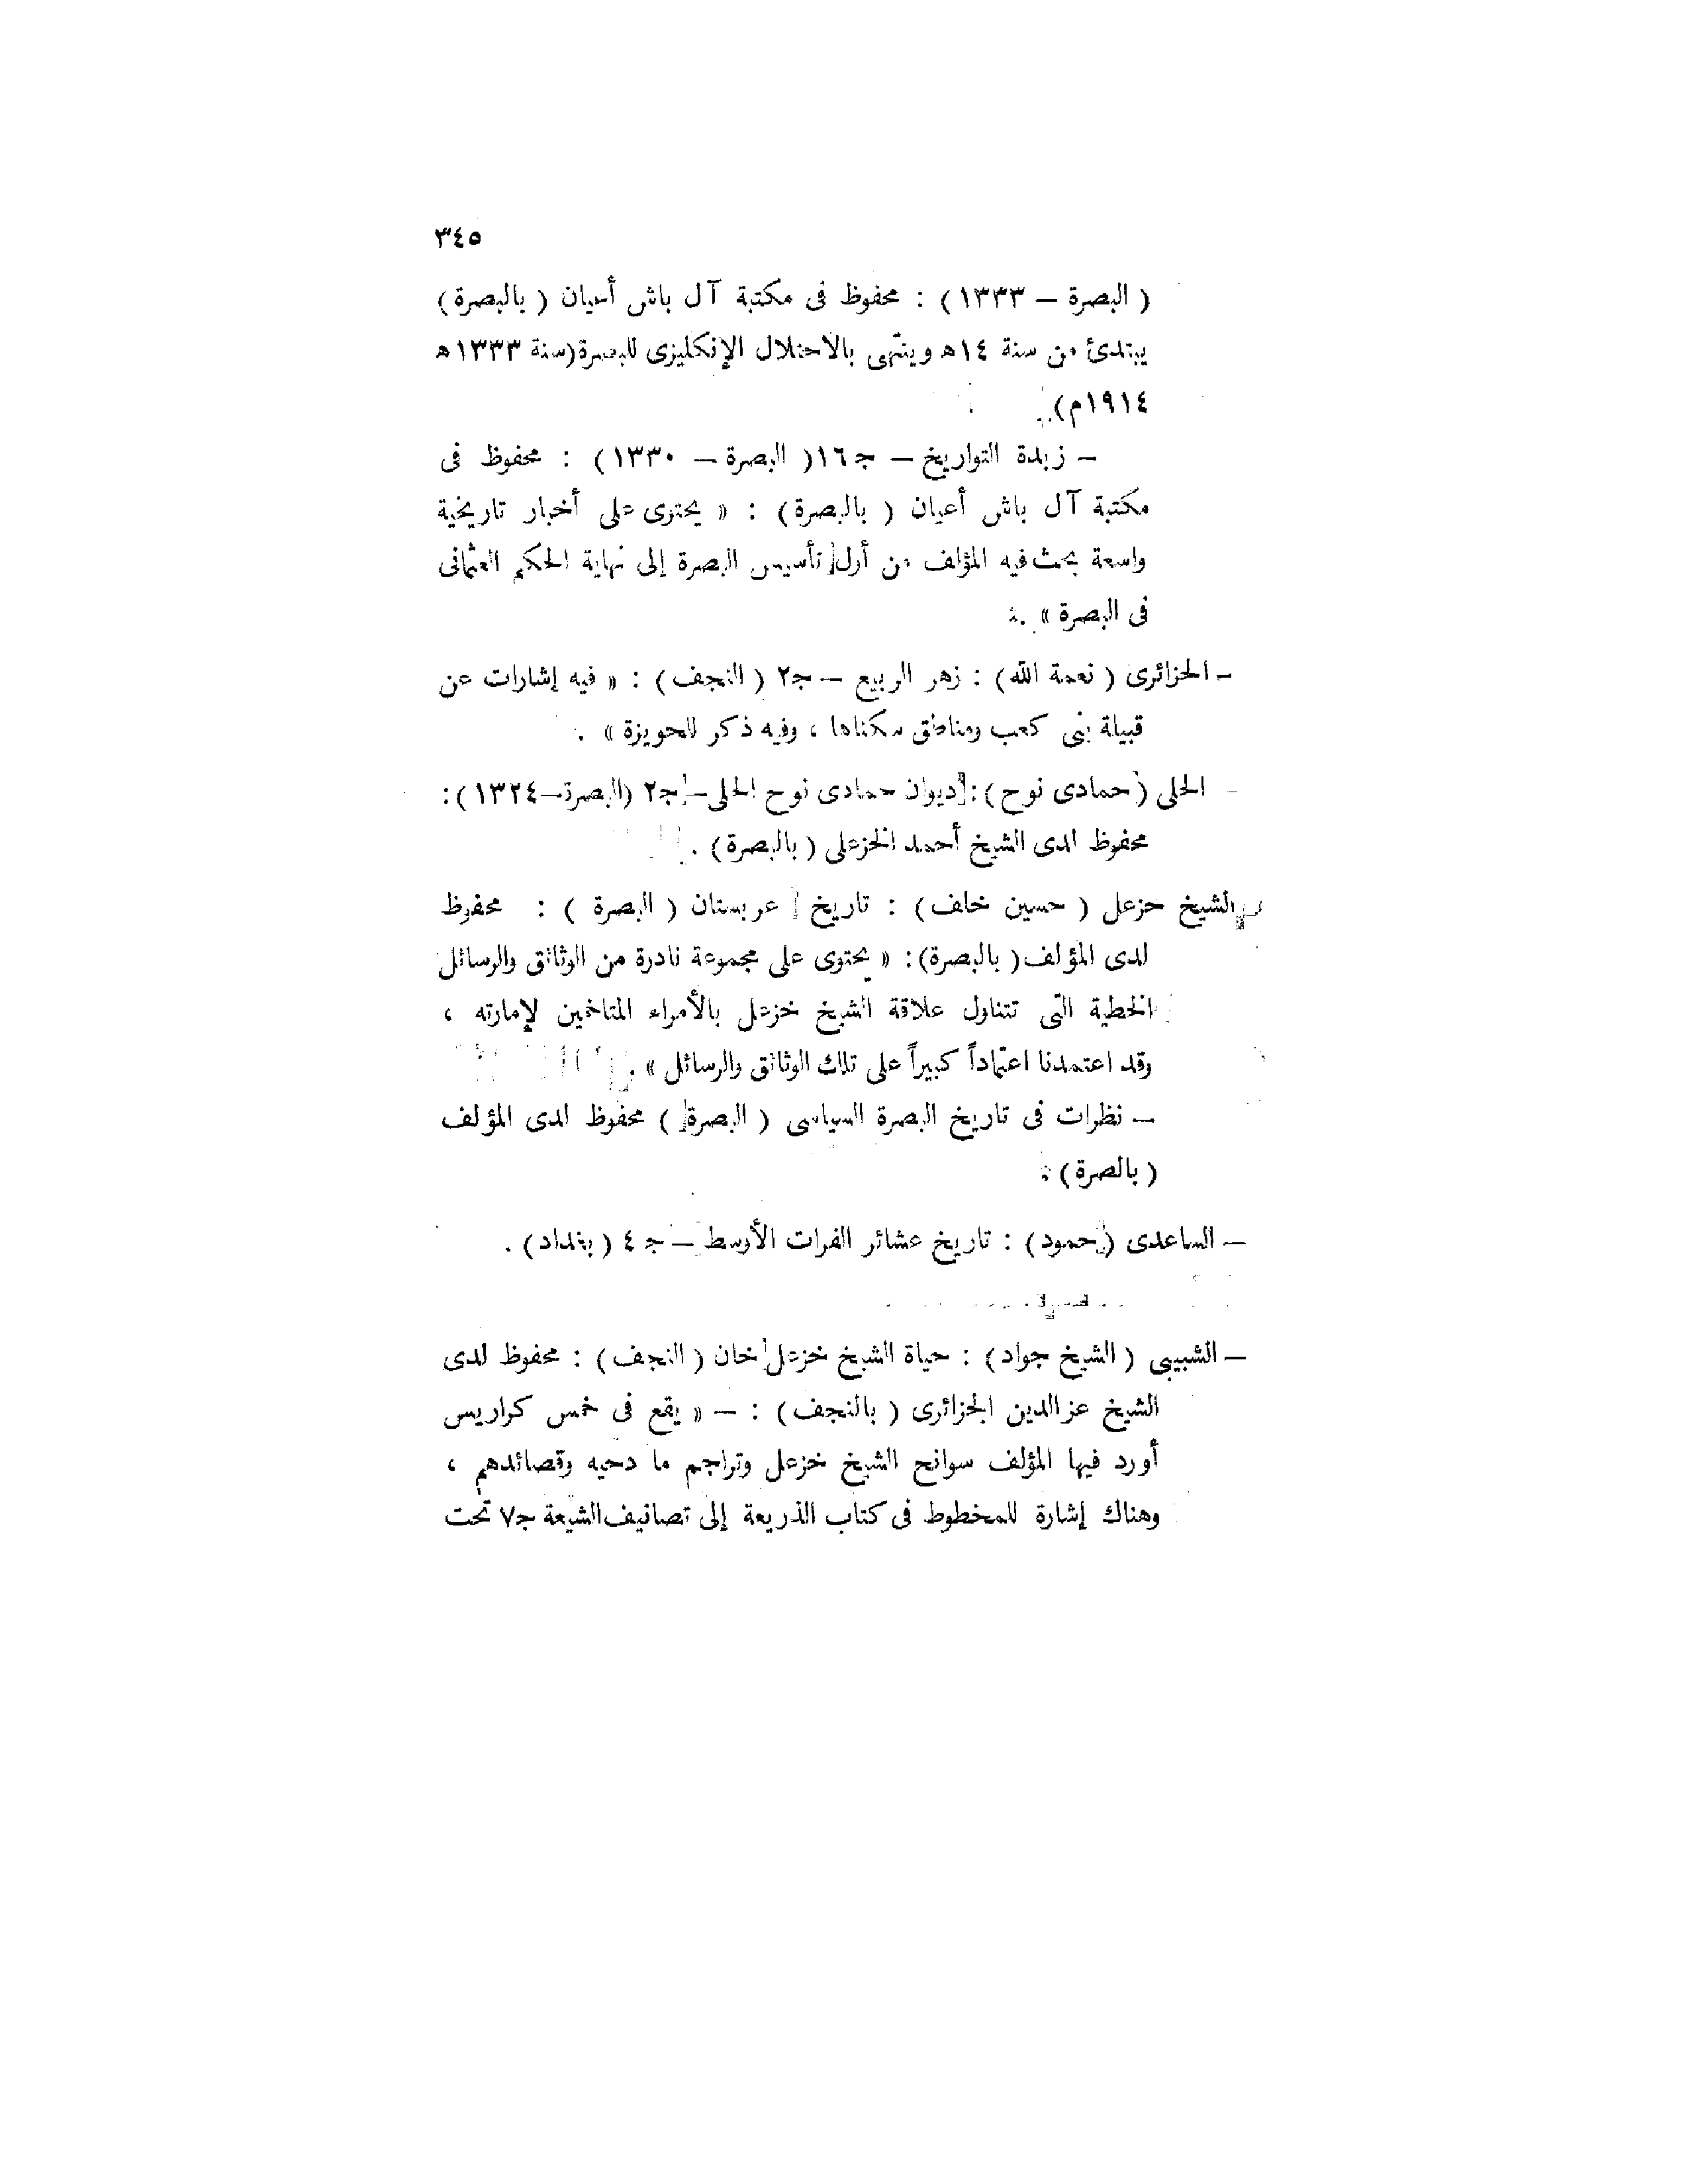 ٣٤٥
( البصرة – ١٣٣٣ ) : محفوظ فى مكتبة آل باش أعيان ( بالبصرة )
يبتدئ من سنة ١٤ه وينتهى بالاحتلال الإنكليزى للبصرة (سنة ١٣٣٣ه
١٩١٤م).
– زبدة التواريخ – ج١٦ ( البصرة – ١٣٣٠ ) : محفوظ فى
مكتبة آل باش أعيان ( بالبصرة ) : « يحتوى على أخبار تاريخية
واسعة بحث فيه المؤلف من أول تأسيس البصرة إلى نهاية الحكم العثمانى
فى البصرة » .
– الجزائرى ( نعمة الله ) : زهر الربيع – ج٢ ( النجف ) : « فيه إشارات عن
قبيلة بنى كعب ومناطق سكناها ، وفيه ذكر للحويزة » .
– الحلى ( حمادى نوح ) : ديوان حمادى نوح الحلى – ج٢ (البصرة – ١٣٢٤ ) :
محفوظ لدى الشيخ أحمد الخزعلى ( بالبصرة ) .
– الشيخ خزعل ( حسين خلف ) : تاريخ عربستان ( البصرة ) : محفوظ
لدى المؤلف ( بالبصرة ) : « يحتوى على مجموعة نادرة من الوثائق والرسائل
الخطية التى تتناول علاقة الشيخ خزعل بالأمراء المتاخمين لإمارته ،
وقد اعتمدنا اعتماداً كبيراً على تلك الوثائق والرسائل » .
– نظرات فى تاريخ البصرة السياسى ( البصرة ) محفوظ لدى المؤلف
( بالصرة ) .
– الساعدى ( حمود ) : تاريخ عشائر الفرات الأوسط – ج ٤ ( بغداد ) .
– الشبيبى ( الشيخ جواد ) : حياة الشيخ خزعل خان ( النجف ) : محفوظ لدى
الشيخ عزالدين الجزائرى ( بالنجف ) : – « يقع فى خمس كراريس
أورد فيها المؤلف سوانح الشيخ خزعل وتراجم ما دحيه وقصائدهم ،
وهناك إشارة للمخطوط فى كتاب الذريعة إلى تصانيف الشيعة ج٧ تحت